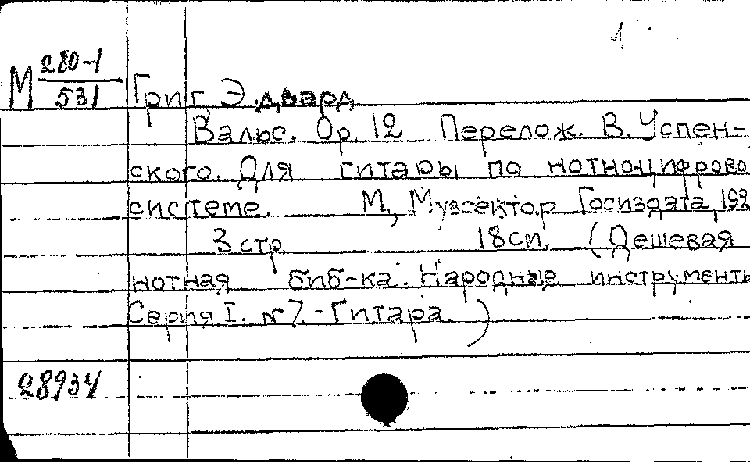 1
М 280-1
531
Григ, Эдвард
Вальс. Op. 12 Перелож. В. Успен-
ского. Для гитары по нотноцифрово
системе. М., Музсектор Госиздата, 192
3 стр 18 сп. (Дешевая
нотная биб-ка. Народные инструменты
Серия I. N 7. - Гитара.)
28934